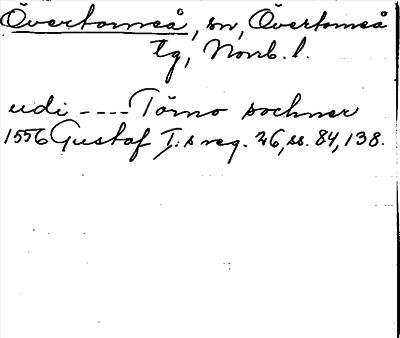 Övertorneå, sn, Övertorneå
tg, Norrb. l.
udi ---- Torno sochner
1556 Gustaf I:s reg. 26, ss. 84, 138.